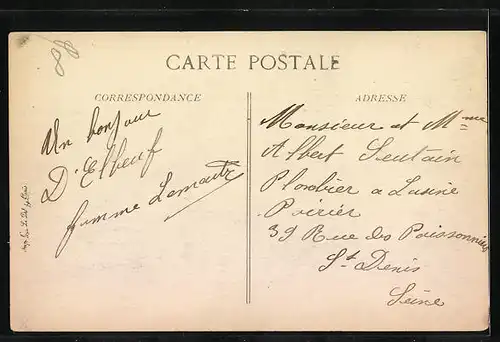 CARTE POSTALE
CORRESPONDANCE
Un bonjour
D'Elbeuf
femme Lemaitre
ADRESSE
Monsieur et Mme
Albert Seutain
Plombier a Lusine
Poirier
39 Rue des Poissonniers
St Denis
Seine